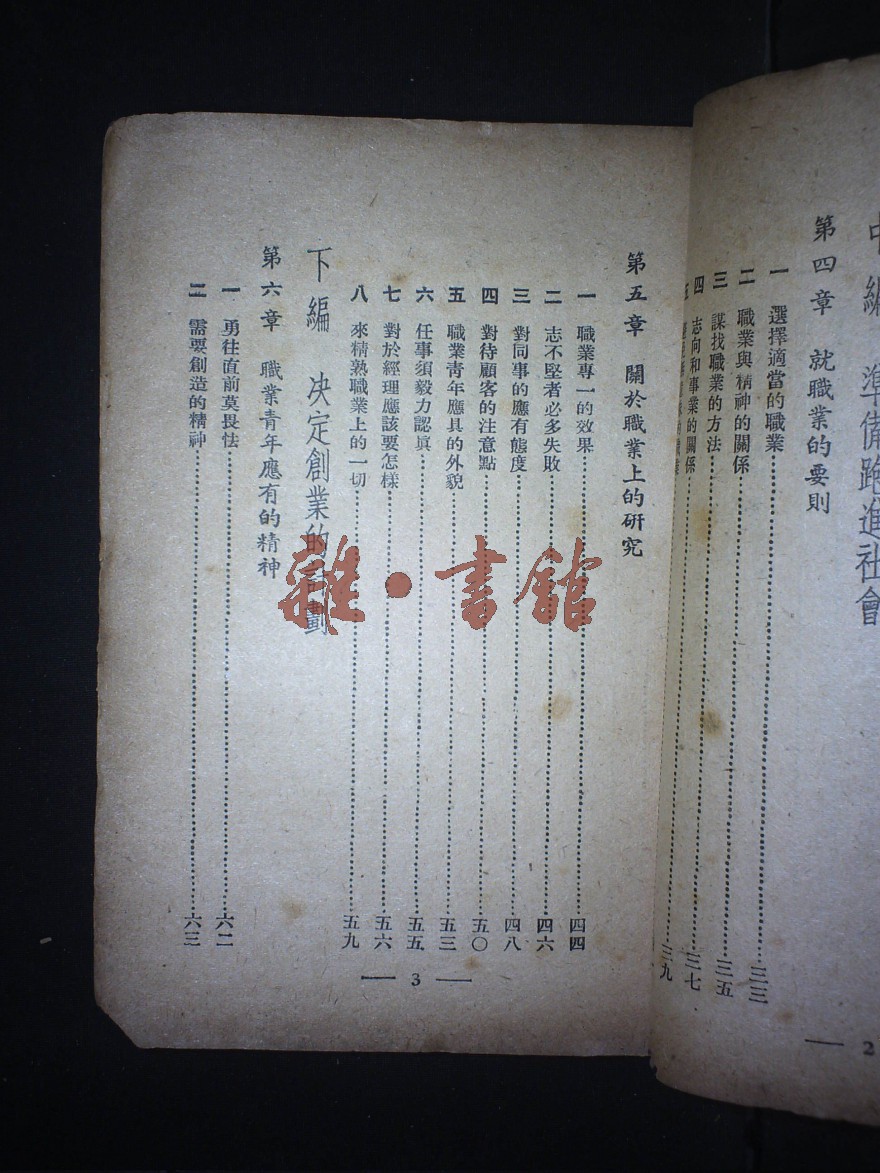 中編　準備跑進社會
第四章　就職業的要則
一　選擇適當的職業……三三
二　職業與精神的關係……三五
三　謀找職業的方法……三七
四　志向和事業的關係……三九
五
2
第五章　關於職業上的研究
一　職業專一的效果……四四
二　志不堅者必多失敗……四六
三　對同事的應有態度……四八
四　對待顧客的注意點……五〇
五　職業青年應具的外貌……五三
六　任事須毅力認眞……五五
七　對於經理應該要怎樣……五六
八　來精熟職業上的一切……五九
下編　决定創業的計劃
第六章　職業青年應有的精神
一　勇往直前莫畏怯……六二
二　需要創造的精神……六三
3
雜·書館